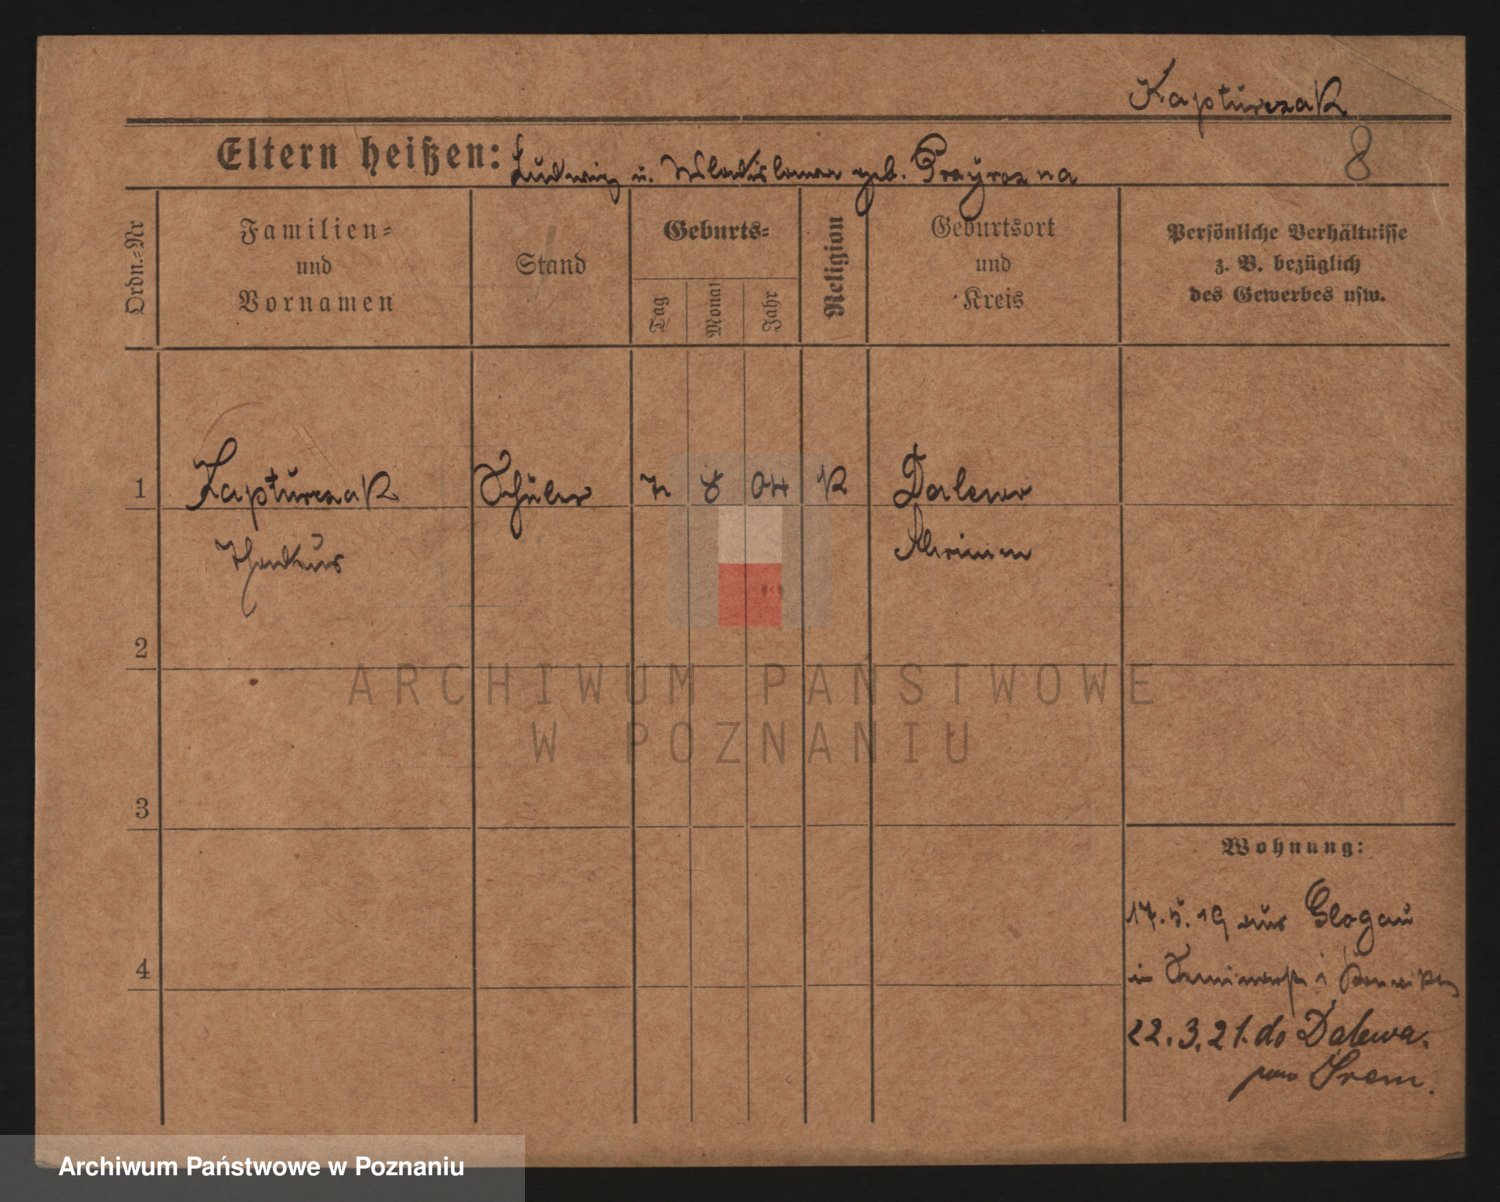 Kapturczak
8
Eltern heißen: Ludwig u. Wladislawa geb.
Ordn.-Nr
Familien-
und
Vornamen
Stand
Geburts-
Tag
Monat
Jahr
Religion
Geburtsort
und
Kreis
Persönliche Verhältnisse
z. B. bezüglich
des Gewerbes usw.
1
Kapturczak
Schüler
7 8 04
K
Dalewo
Schrimm
2
3
4
Wohnung:
17.5.19 aus Glogau
22.3.21. do Dalewa.
pow Śrem.
ARCHIWUM PAŃSTWOWE
W POZNANIU
Archiwum Państwowe w Poznaniu